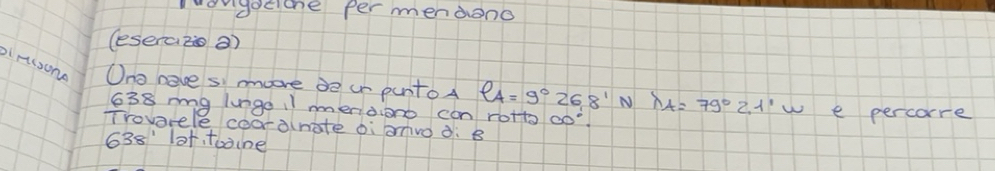 Navigazione per meridiano
(esercizio 2)
Una nave si muove da un punto A φA = 9° 26,8' N λA = 79° 2,1' W e percorre
638 mg lungo il meridiano con rotta 00°.
Trovare le coordinate di arrivo di B
638' latitudine